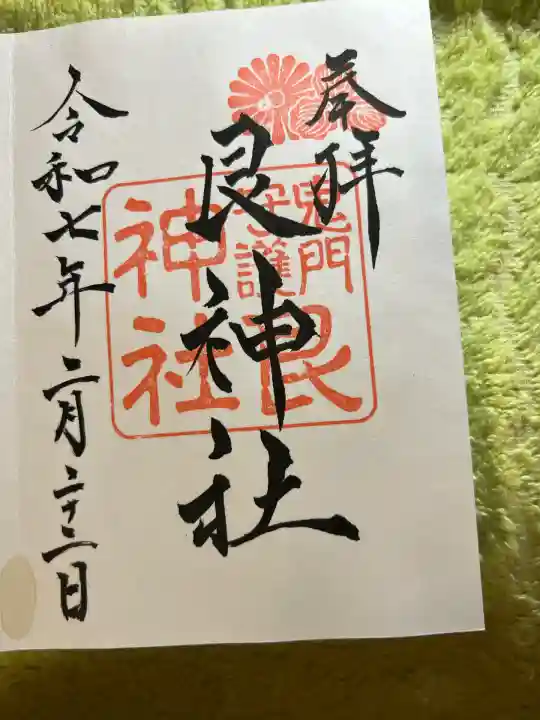 奉拝
艮神社
鬼門
守護
艮
神社
令和七年二月二十二日